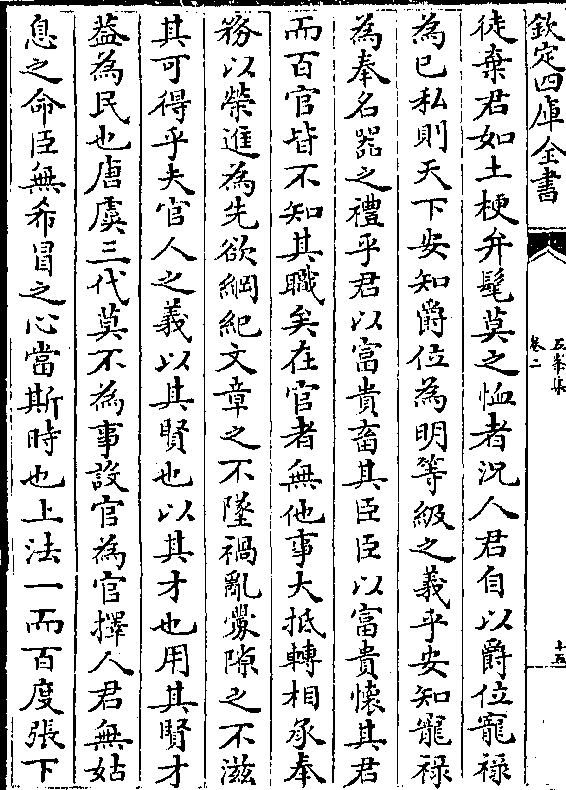 欽定四庫全書
五峯集
卷二
十五
徒棄君如土梗弁髦莫之恤者況人君自以爵位寵祿
為已私則天下安知爵位為明等級之義乎安知寵祿
為奉名器之禮乎君以富貴畜其臣臣以富貴懷其君
而百官皆不知其職矣在官者無他事大抵轉相承奉
務以榮進為先欲綱紀文章之不墜禍亂釁隙之不滋
其可得乎夫官人之義以其賢也以其才也用其賢才
葢為民也唐虞三代莫不為事設官為官擇人君無姑
息之命臣無希冒之心當斯時也上法一而百度張下